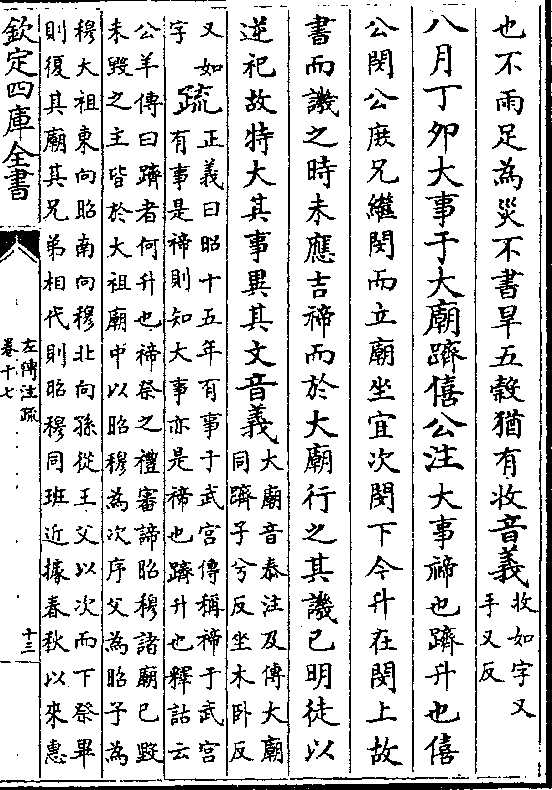 也不雨足為災不書旱五穀猶有收音義收如字又
手又反
八月丁卯大事于大廟躋僖公注大事禘也躋升也僖
公閔公庶兄繼閔而立廟坐宜次閔下今升在閔上故
書而譏之時未應吉禘而於大廟行之其譏已明徒以
逆祀故特大其事異其文音義大廟音泰注及傳大廟
同躋子兮反坐木卧反
又如
字
疏正義曰昭十五年有事于武宮傳稱禘于武宮
有事是禘則知大事亦是禘也躋升也釋詁云
公羊傳曰躋者何升也禘祭之禮審諦昭穆諸廟已毀
未毀之主皆於大祖廟中以昭穆為次序父為昭子為
穆大祖東向昭南向穆北向孫從王父以次而下祭畢
則復其廟其兄弟相代則昭穆同班近據春秋以來惠
欽定四庫全書
左傳注疏
卷十七
十三